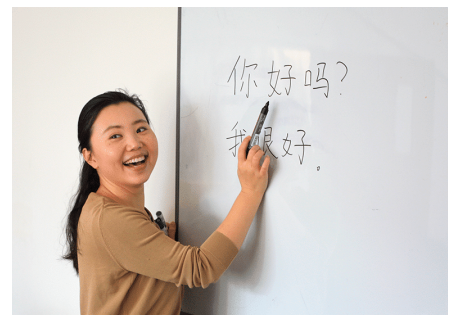 你好吗?
我很好。